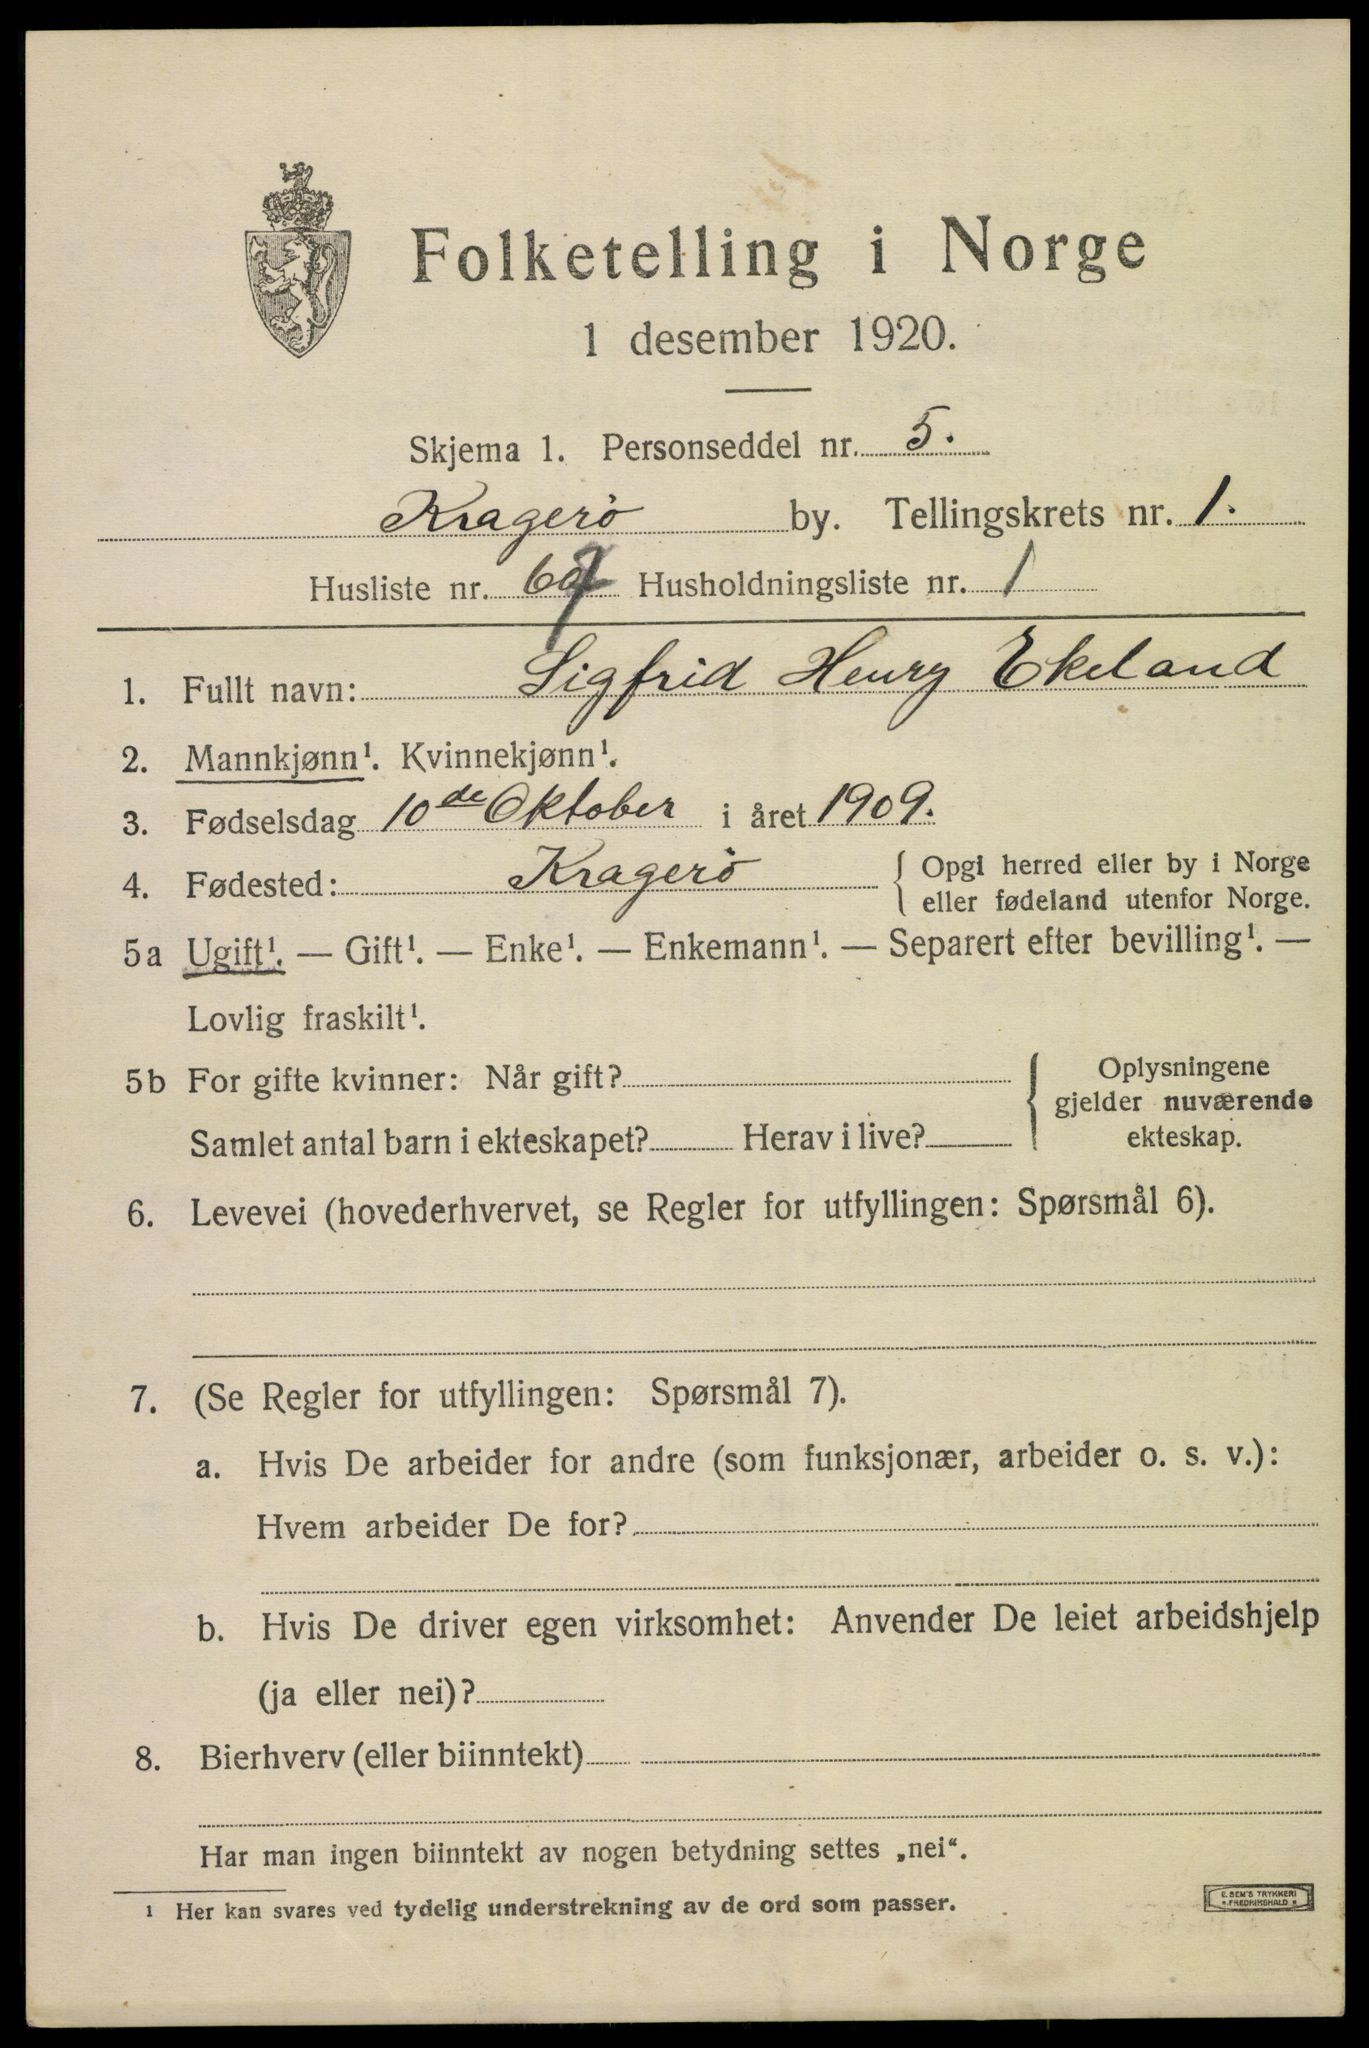 Folketelling i Norge
1 desember 1920.
Skjema 1. Personseddel nr. 5.
Kragerö by. Tellingskrets nr. 1.
Husliste nr. Husholdningsliste nr. 1
1. Fullt navn: Sigfrid Henry Ekeland
2. Mannkjønn¹. Kvinnekjønn¹.
3. Fødselsdag 10de Oktober i året 1909.
4. Fødested: Kragerö { Opgi herred eller by i Norge
eller fødeland utenfor Norge.
5a Ugift¹. — Gift¹. — Enke¹. — Enkemann¹. — Separert efter bevilling¹. —
Lovlig fraskilt¹.
5b For gifte kvinner: Når gift?
Samlet antal barn i ekteskapet? Herav i live?
{ Oplysningene
gjelder nuværende
ekteskap.
6. Levevei (hovederhvervet, se Regler for utfyllingen: Spørsmål 6).
7. (Se Regler for utfyllingen: Spørsmål 7).
a. Hvis De arbeider for andre (som funksjonær, arbeider o. s. v.):
Hvem arbeider De for?
b. Hvis De driver egen virksomhet: Anvender De leiet arbeidshjelp
(ja eller nei)?
8. Bierhverv (eller biinntekt)
Har man ingen biinntekt av nogen betydning settes „nei“.
1 Her kan svares ved tydelig understrekning av de ord som passer.
E. SEM'S TRYKKERI
FREDRIKSHALD